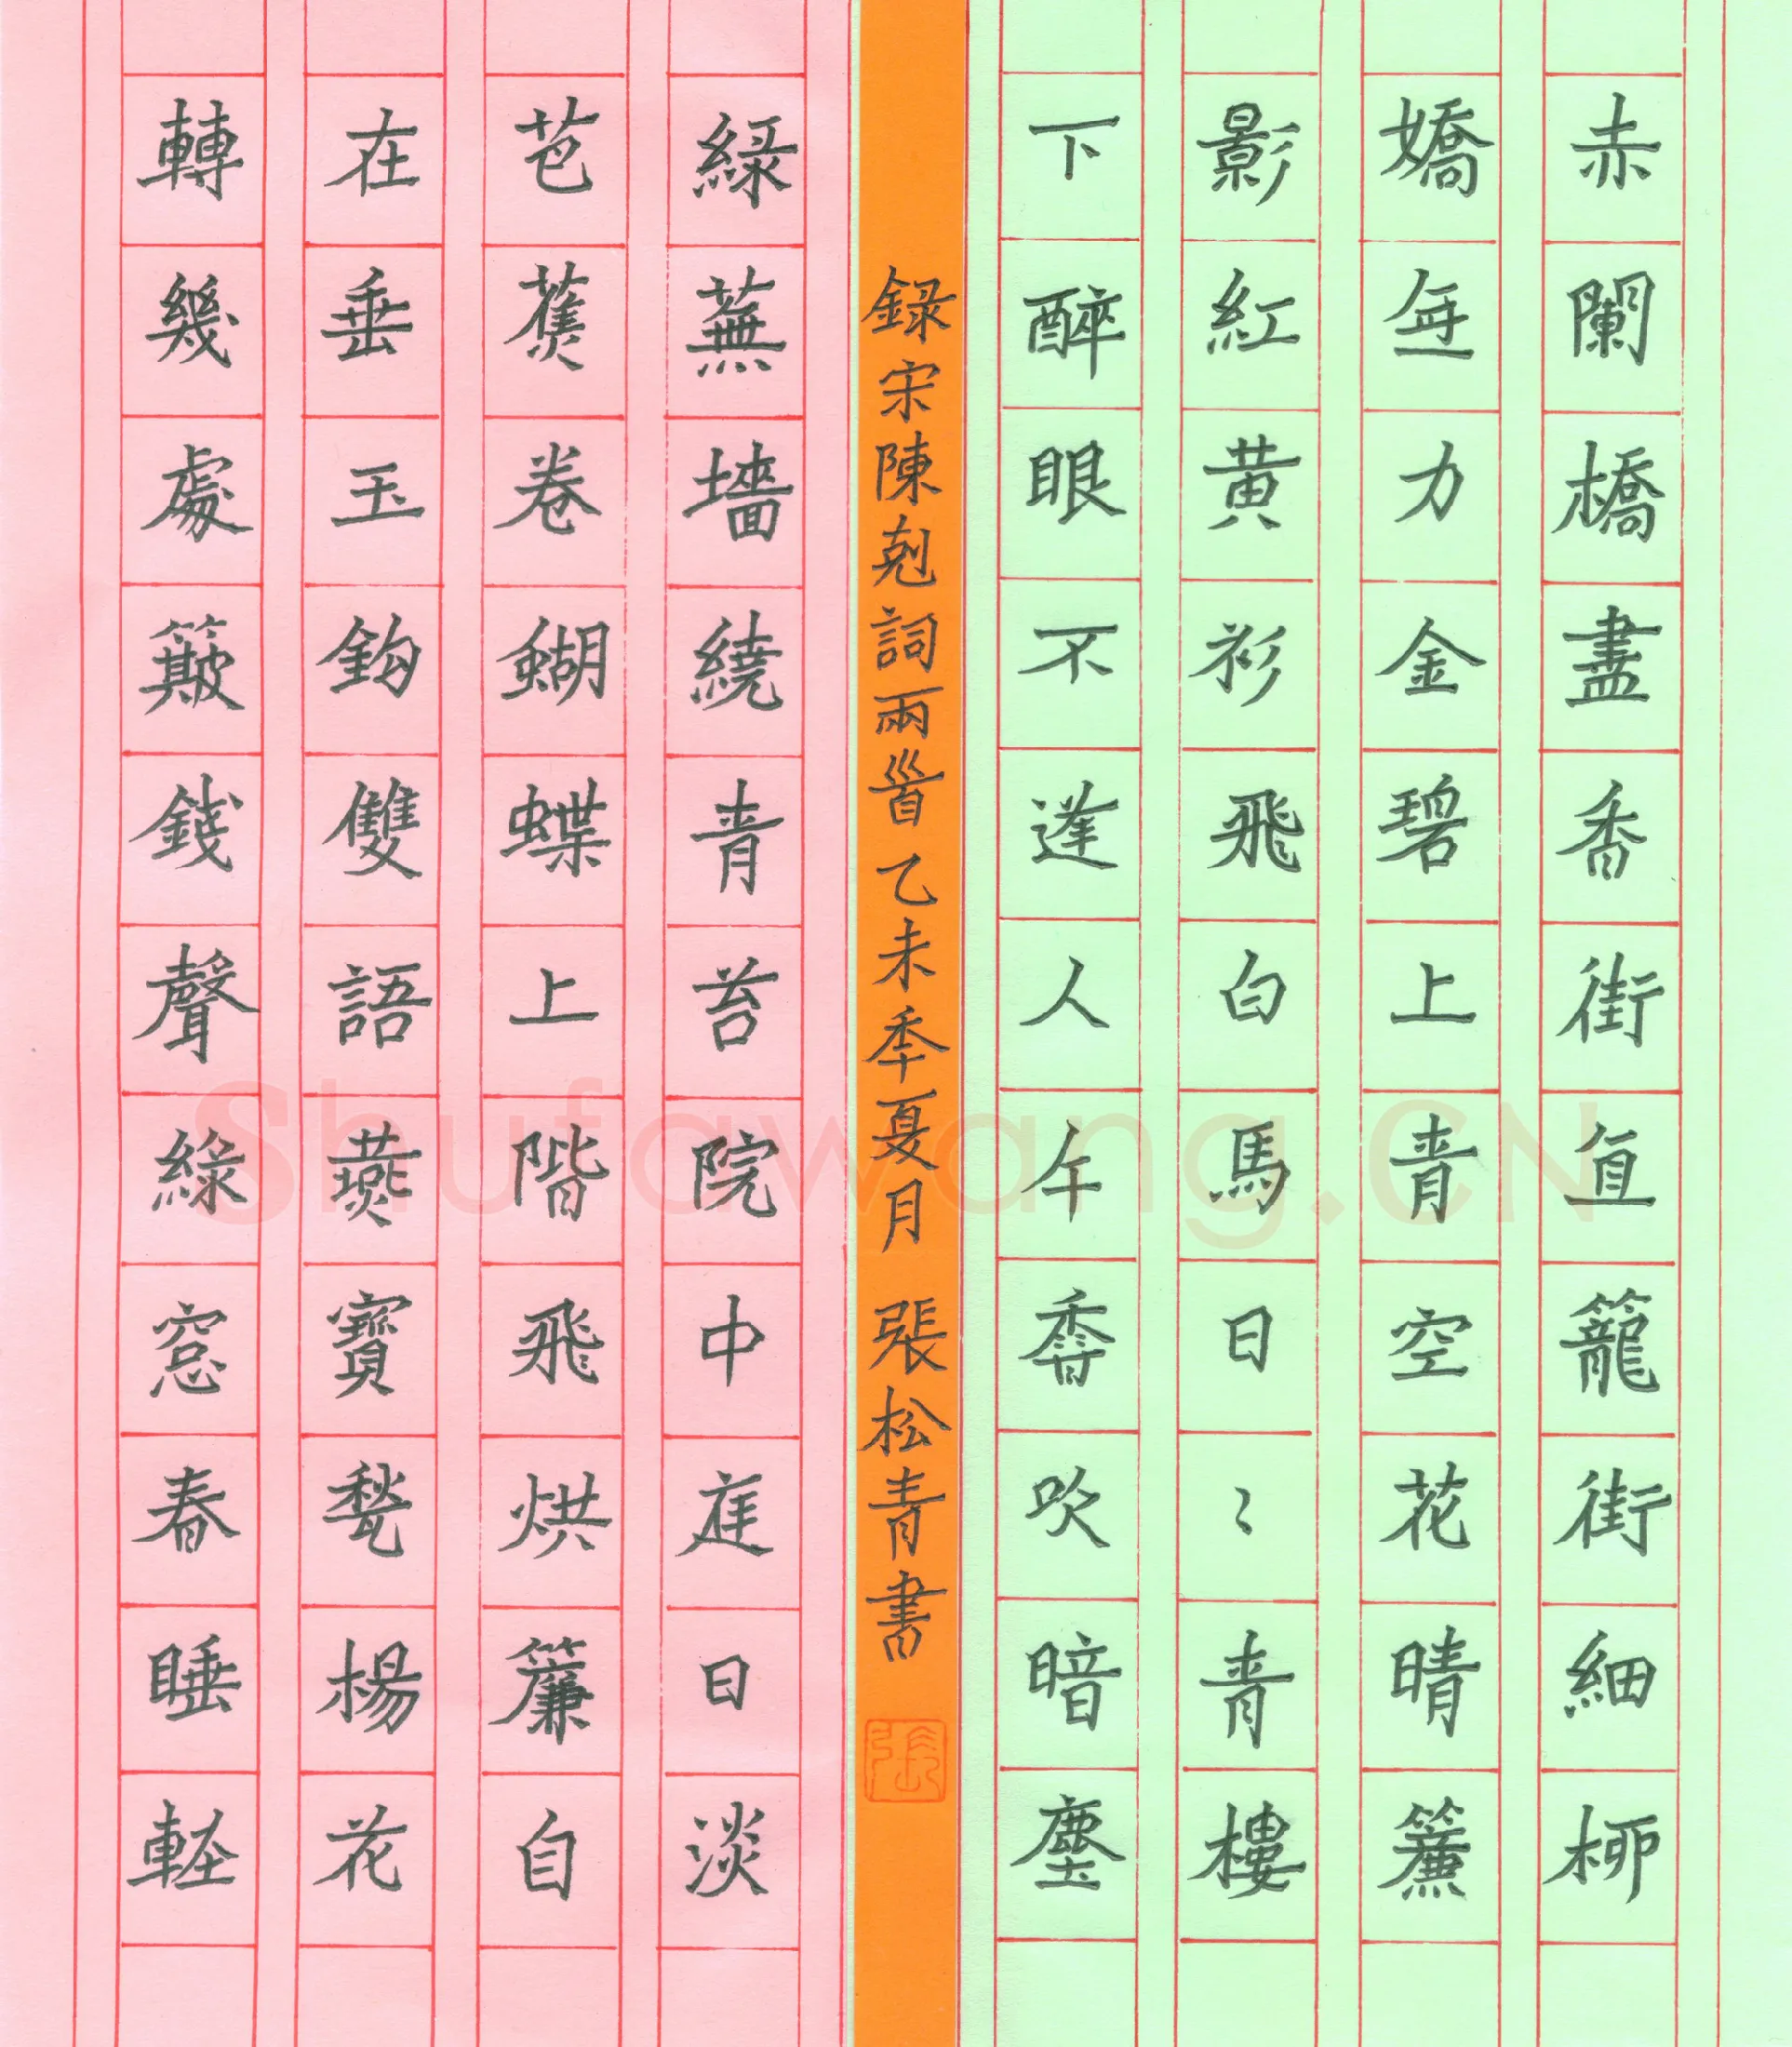 赤闌橋盡香街直籠街細柳
嬌無力金碧上青空花晴簾
影紅黄衫飛白馬日〻青樓
下醉眼不逢人午香吹暗塵
録宋陳剋詞兩首 乙未秊夏月 張松青書
張
緑蕪墻繞青苔院中庭日淡
芭蕉卷蝴蝶上階飛烘簾自
在垂玉鈎雙語燕寶甃楊花
轉幾處簸錢聲緑窓春睡輕
Shufawang.CN